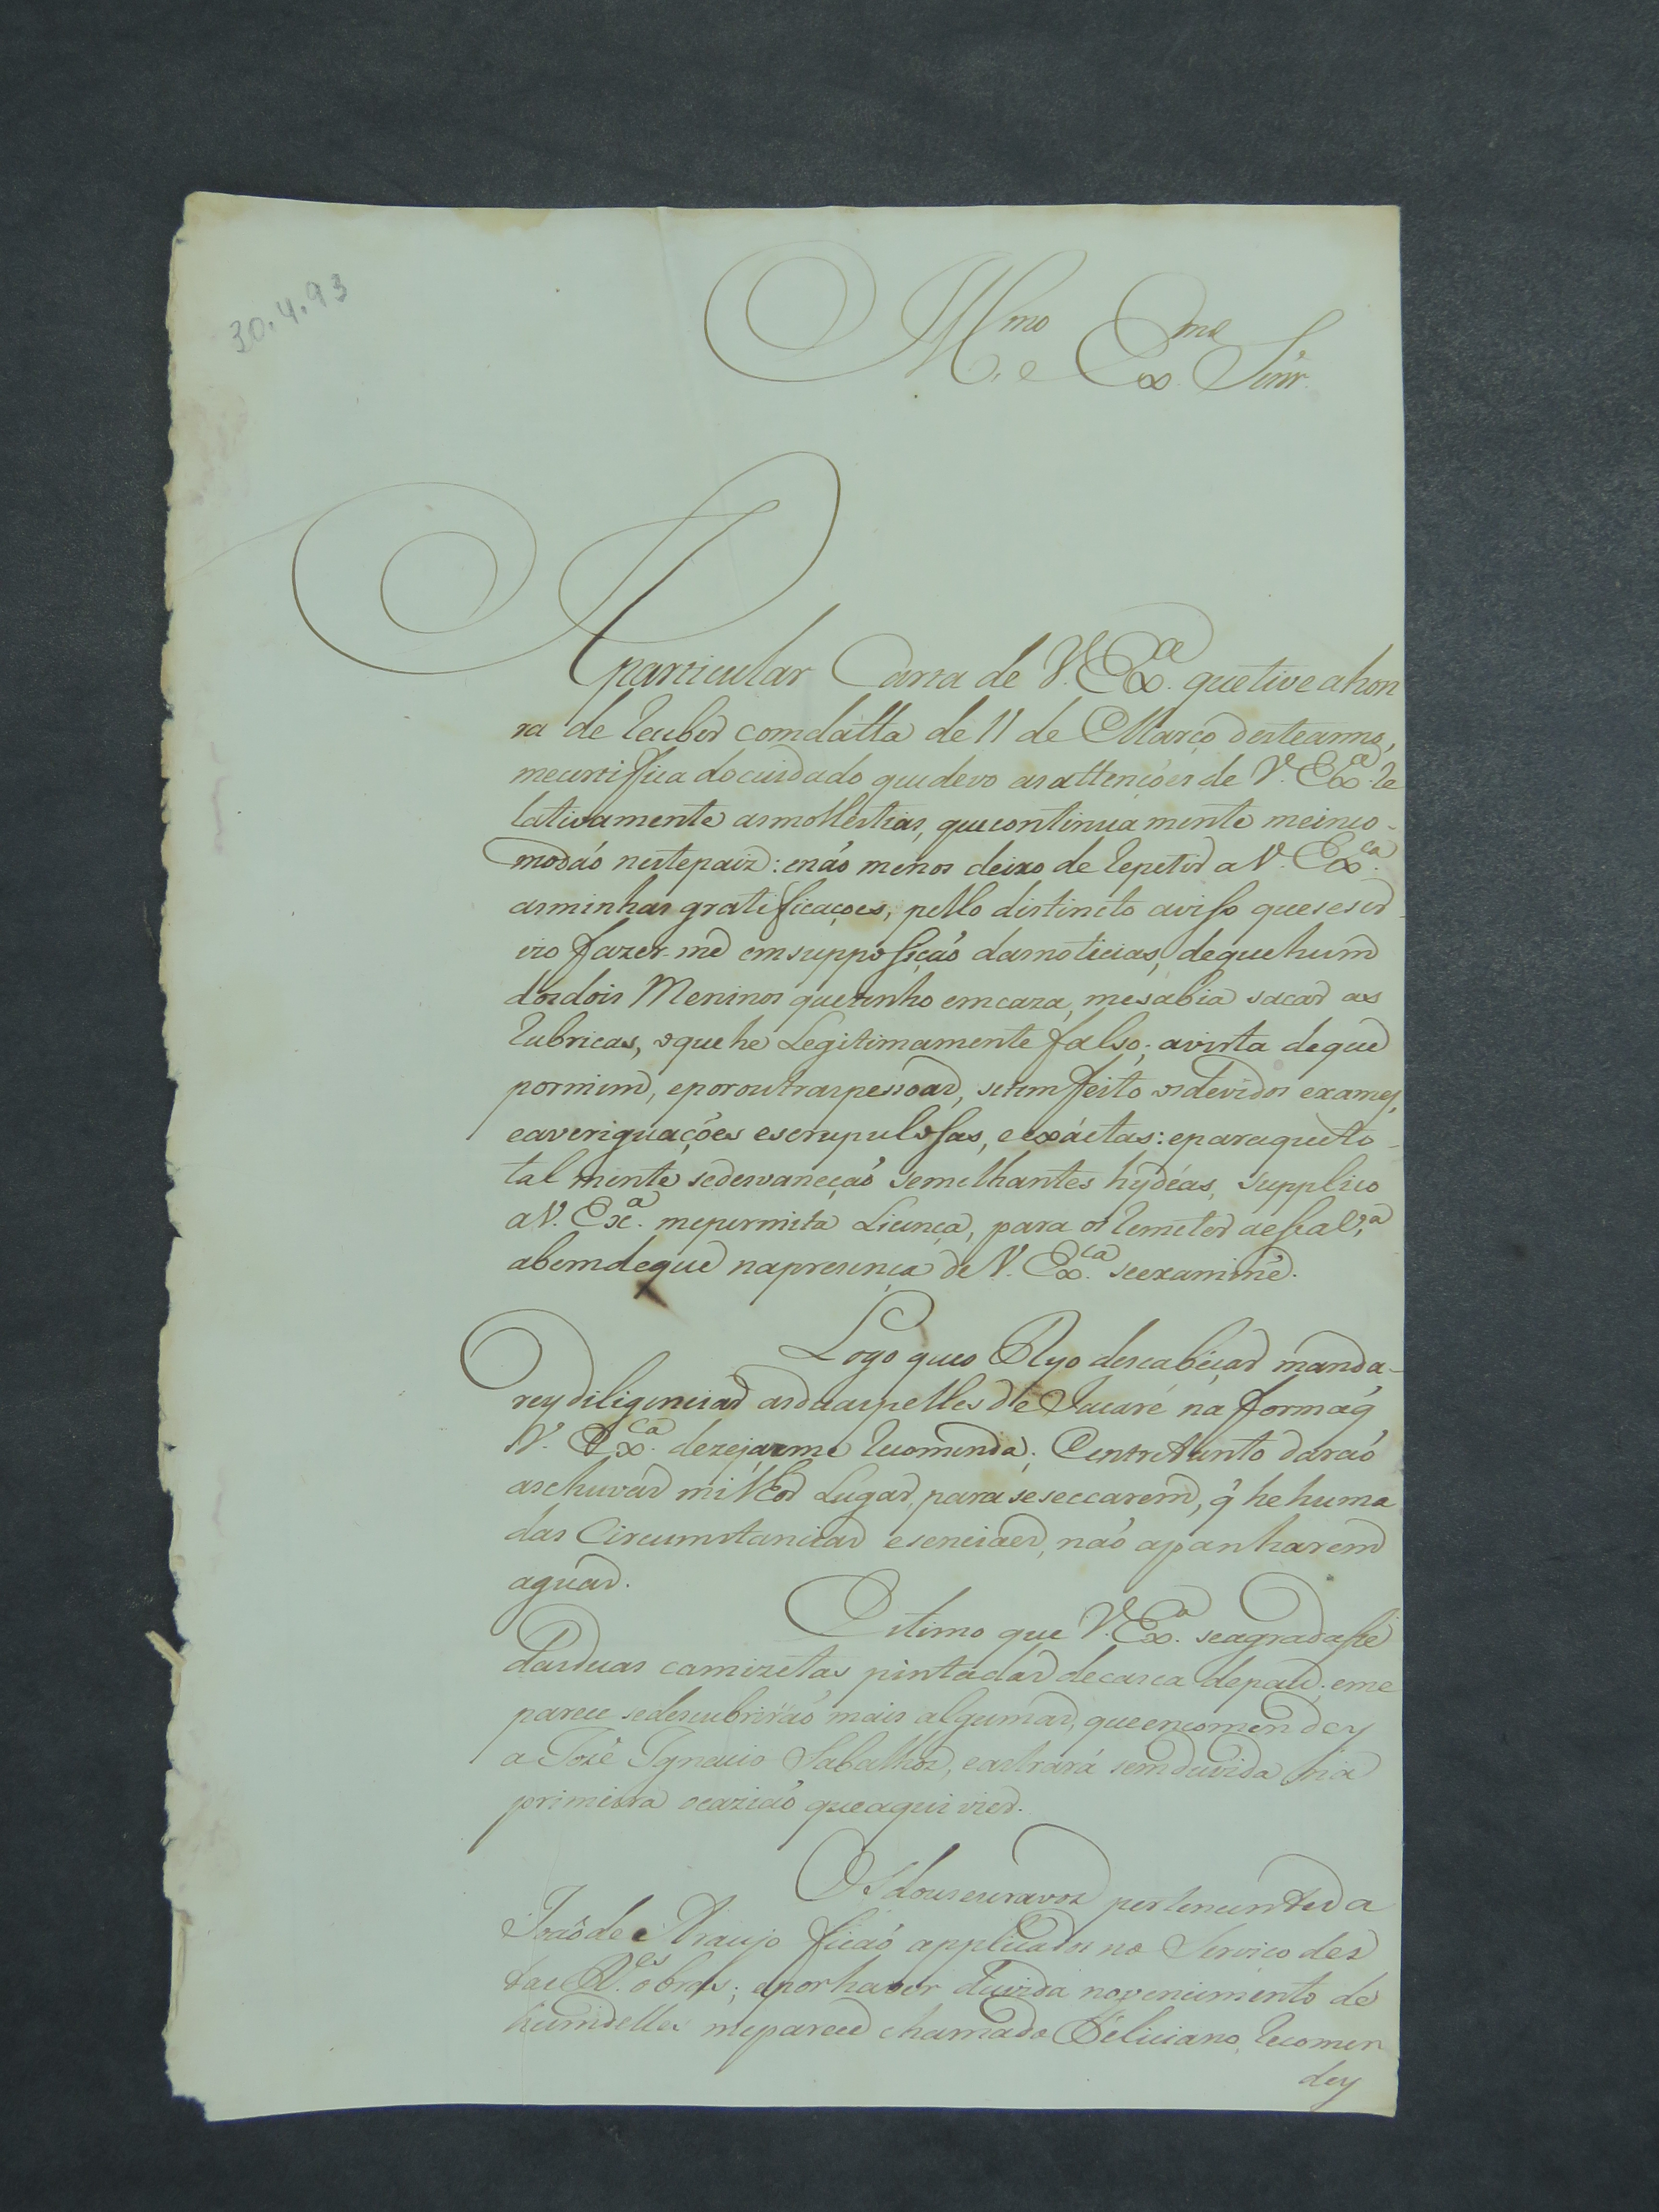 30.4.93
Ill.mo e Ex.mo Sinr.
A particular Carta de V. Ex.a que tive a hon
ra de receber com datta de 11 de Março deste anno,
me certiffica do cuidado que devo as attenções de V. Ex.a re
lativamente as mollestias, que continuamente me inco-
modaõ neste paiz: e naõ menos deixo de repetir a V. Ex.ca
as minhas gratificaçoes, pello distincto aviso que se ser
vio fazer-me em supposiçaõ das noticias, de que hum
dos dois Meninos que tenho em caza, me sabia sacar as
rubricas, o que he Legitimamente falso; a vista de que
por mim, e por outras pessoas, se tem feito os devidos exames,
e averiguações escrupulosas, e exáctas: e para que to-
tal mente se desvaneçaõ semelhantes hydéas, supplico
a V. Ex.a me permita Licença, para os remeter a essa
a bem de que na presença de V. Ex.ca se examine.
Logo que o Ryo descabeçar manda-
rey diligenciar as duas pelles de Jacaré na forma q̃
V. Ex.ca dezeja e me recomenda; Entretanto daraõ
as chuvas milhor Lugar, para se seccarem, q̃ he huma
das Circumstancias esenciaes, naõ apanharem
aguas.
Estimo que V. Ex.a se agradasse
das duas camizetas pintadas de casca de pau; e me
parece se descubriraõ mais algumas, que encomendey
a Jozé Ignacio Sabalhos, e as trará sem duvida na
primeira ocaziaõ que aqui vier.
Os dous escravos pertencentes a
Joaõ de Araujo ficaõ applicados no Serviço des
tas R.es obras; e por haver duvida no vencimento de
hum delles me parece chamado Feliciano, recomen
dey